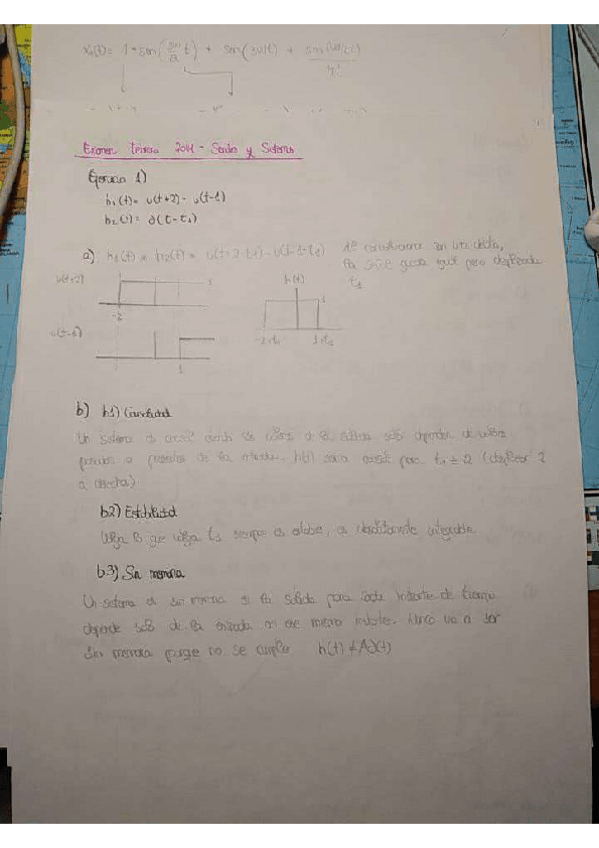 x₁(t)= 1 + sen( t) + sen(3πt) +
Examen Teleco 2011 - Señales y Sistemas
Ejercicio 1)
h₁(t)= u(t+2) - u(t-1)
h₂(t)= δ(t-t₁)
a) h₁(t) * h₂(t) = u(t+2-t₁) - u(t-1-t₁) Al convolucionar con una delta,
la señal queda igual pero desplazada
t₁
u(t+2)
1
-2
h(t)
1
-2+t₁ 1+t₁
u(t-1)
1
b) b1) Causalidad
Un sistema es causal cuando los valores de la salida sólo dependen de valores
pasados o presentes de la entrada. h(t) será causal para t₁ ≥ 2 (desplazar 2
a derecha)
b2) Estabilidad
Valga lo que valga t₁ siempre es estable, es absolutamente integrable
b3) Sin memoria
Un sistema es sin memoria si la salida para cada instante de tiempo
depende sólo de la entrada en ese mismo instante. Nunca va a ser
sin memoria porque no se cumple h(t) ≠ Aδ(t)